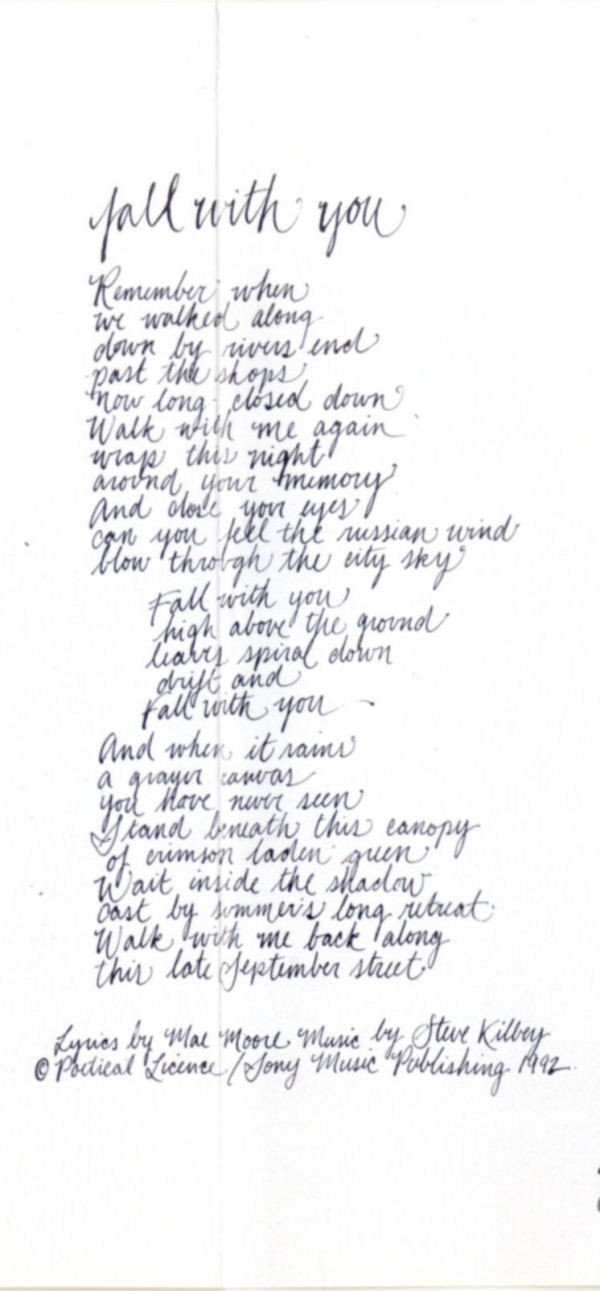 fall with you
Remember when
we walked along
down by rivers end
past the shops
now long closed down
Walk with me again
wrap this night
around your memory
And close your eyes
can you feel the russian wind
blow through the city sky
Fall with you
high above the ground
leaves spiral down
drift and
fall with you
And when it rains
a grayer canvas
you have never seen
Stand beneath this canopy
of crimson laden green
Wait inside the shadow
cast by summer's long retreat
Walk with me back along
this late September street
Lyrics by Mae Moore Music by Steve Kilbey
© Poetical Licence / Sony Music Publishing 1992